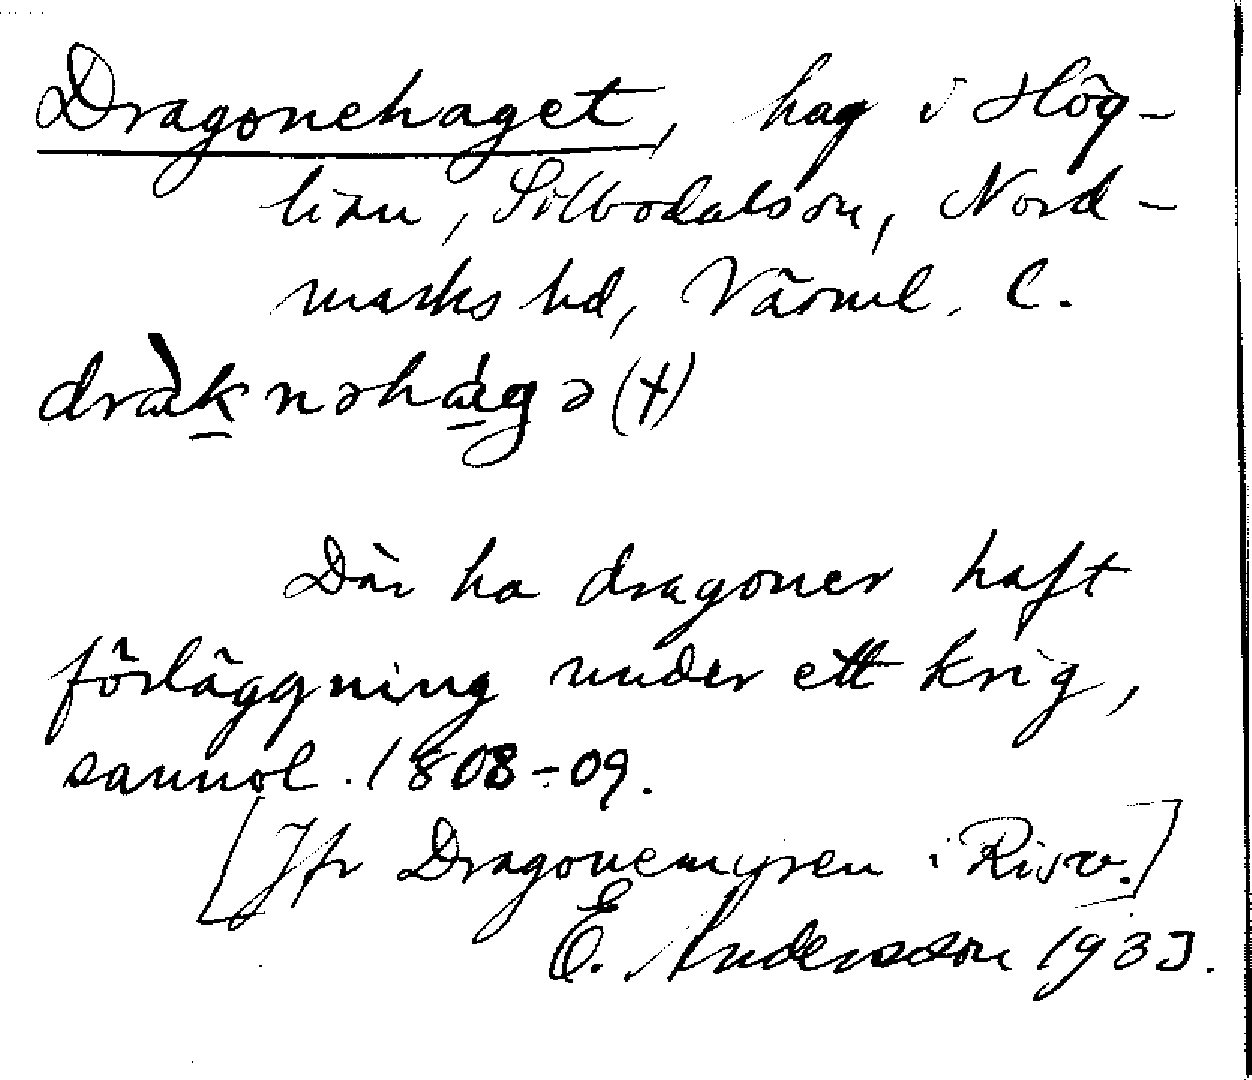 Dragonehaget, hag i Hög-
lian, Silbodalssn, Nord-
marks hd, Värml. l.
Där ha dragoner haft
förläggning under ett krig,
sannol. 1808-09.
[Jfr Dragonemyren i Risv.]
E. Andersson 1933.